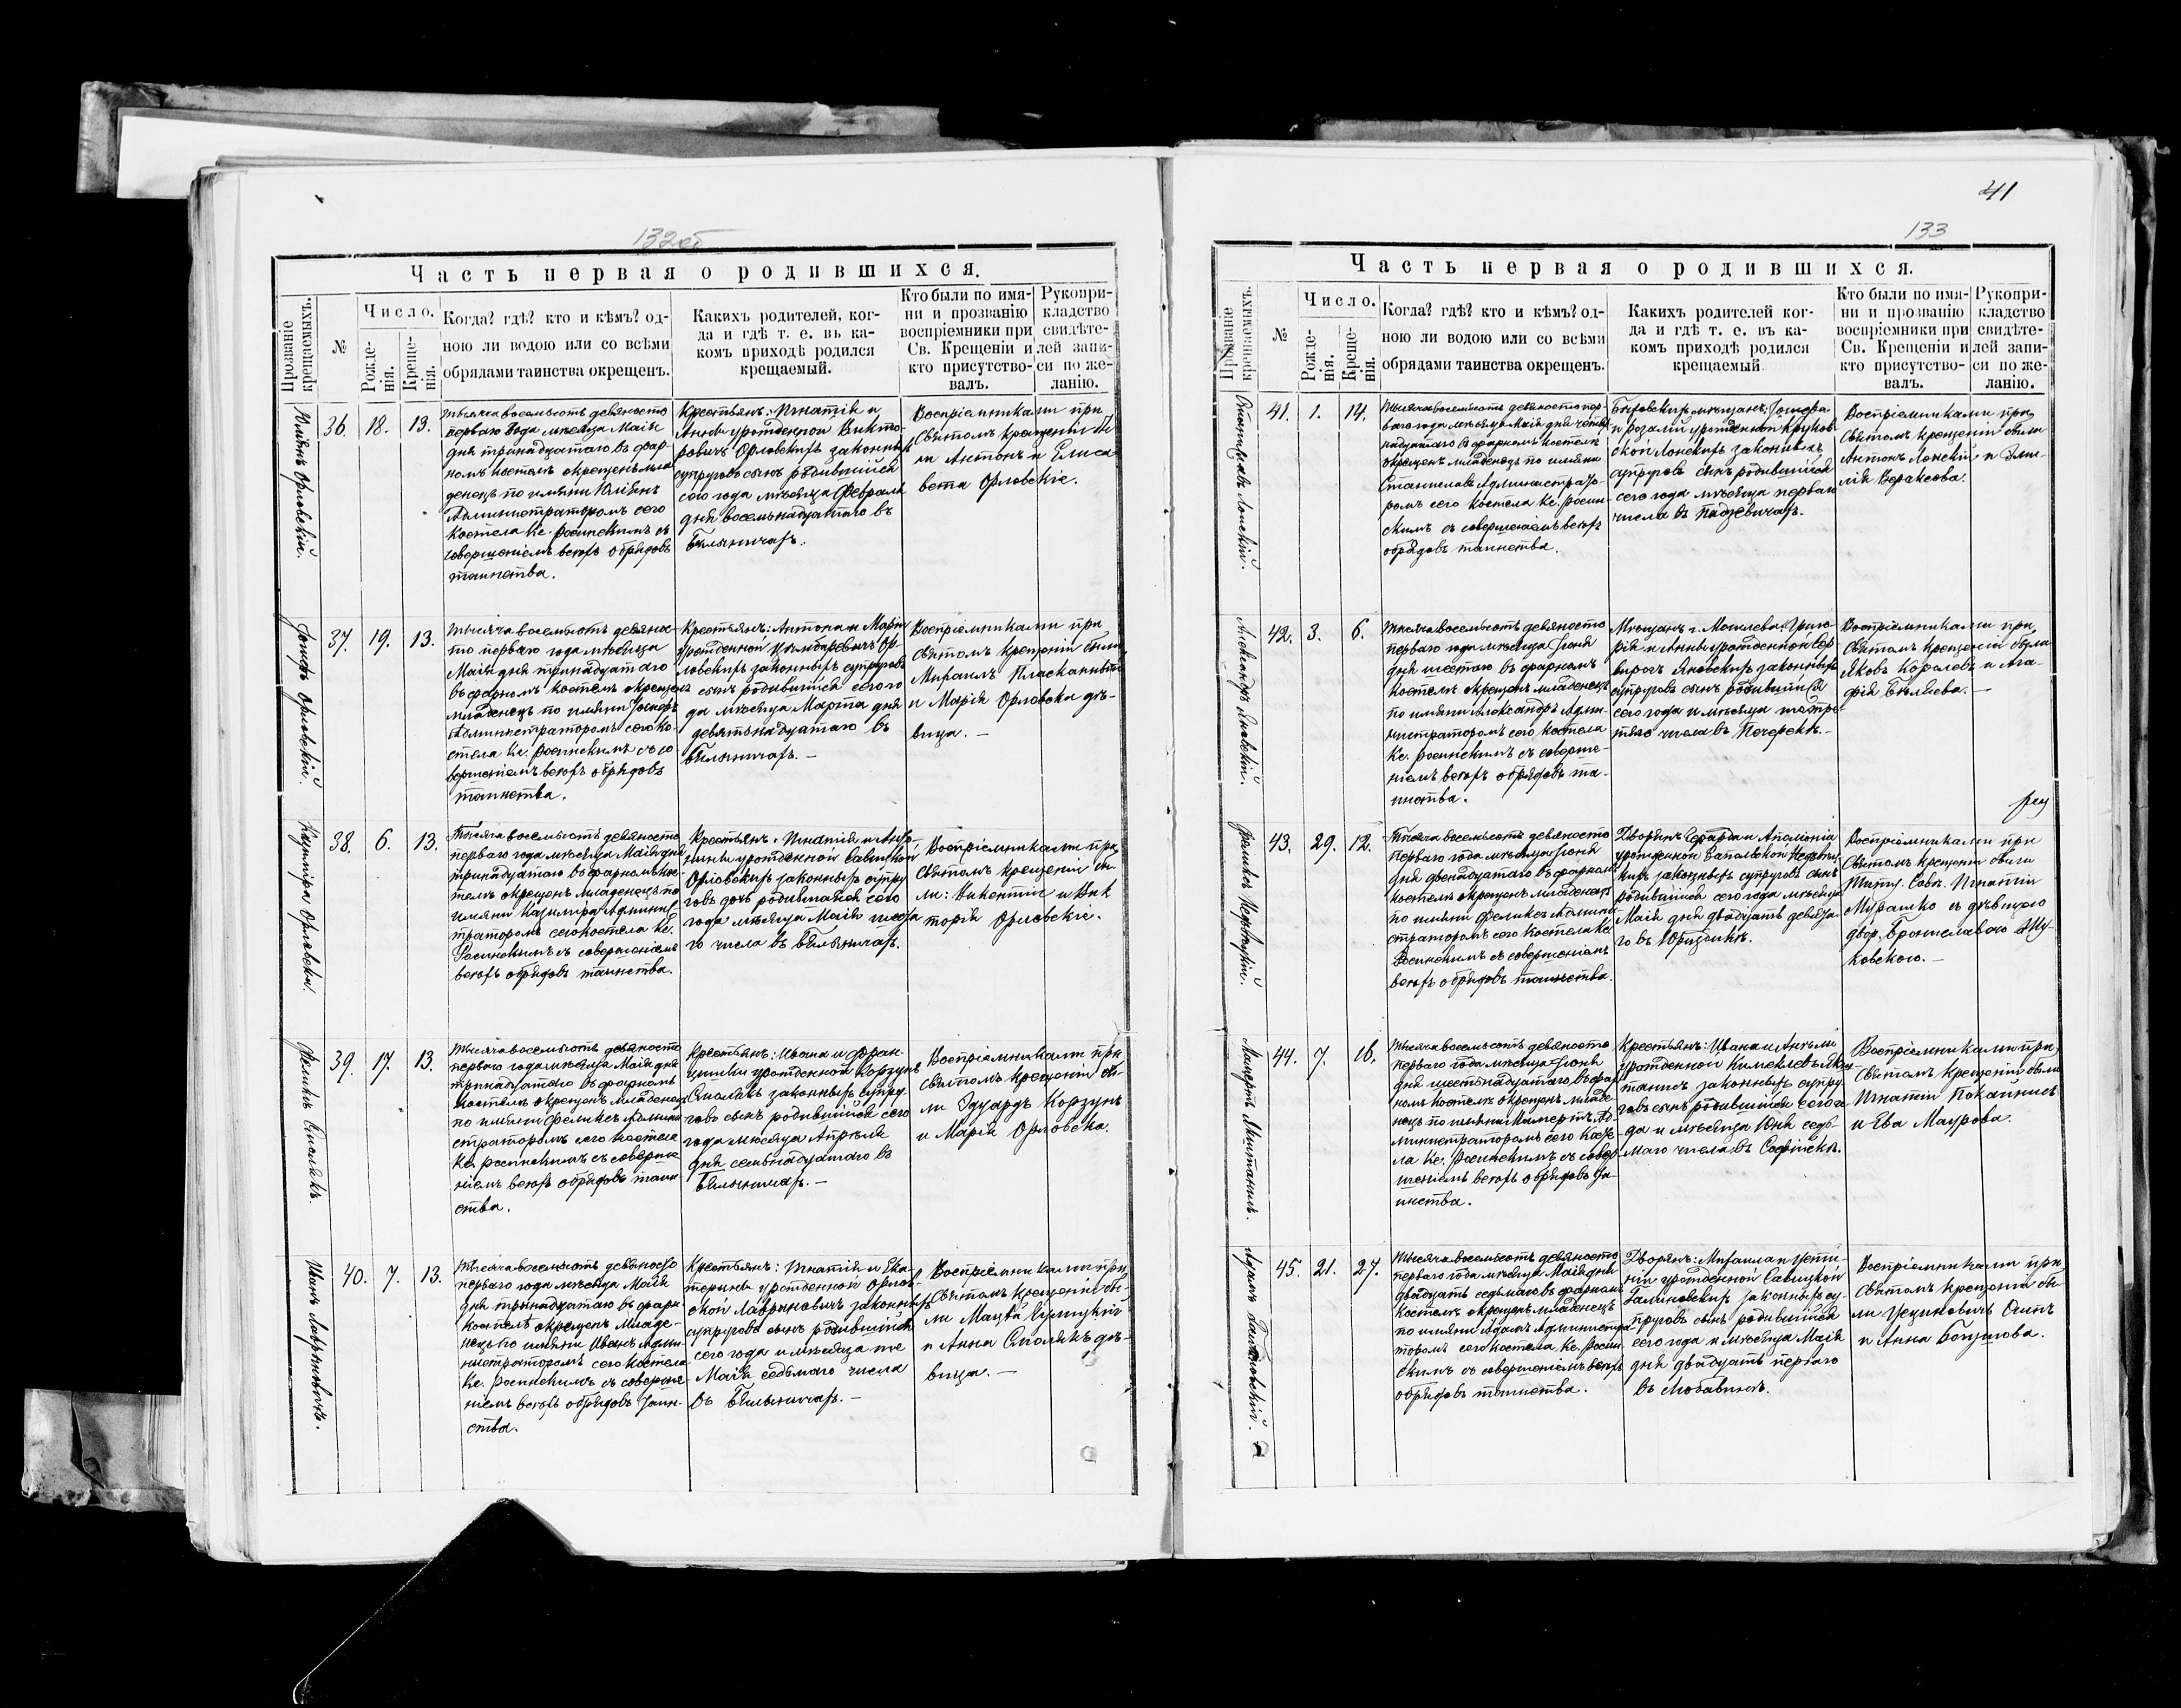 132об
Часть первая о родившихся.
Прозваніе крещаемыхъ.
№
Число.
Рожде-
нія.
Креще-
нія.
Когда? гдѣ? кто и кѣмъ? од-
ною ли водою или со всѣми
обрядами таинства окрещенъ.
Какихъ родителей, ког-
да и гдѣ т. е. въ ка-
комъ приходѣ родился
крещаемый.
Кто были по имя-
ни и прозванію
воспріемники при
Св. Крещеніи и
кто присутство-
валъ.
Рукопри-
кладство
свидѣте-
лей запи-
си по же-
ланію.
Юліянъ Орловскій.
36. 18. 13.
Тысяча восемьсотъ девяносто
перваго года мѣсяца Маія
дня тринадцатаго въ фар-
номъ костелѣ окрещенъ мла
денецъ по имяни Юліянъ
Администраторомъ сего
костела Кс. Росинскимъ съ
совершеніемъ всѣхъ обрядовъ
таинства.
Крестьянъ: Игнатія и
Анны урожденной Викто-
ровичъ Орловскихъ законныхъ
супруговъ сынъ родившійся
сего года мѣсяца Февраля
дня восемьнадцатаго въ
Бялыничахъ.
Воспріемниками при
Святомъ крещеніи бы
ли Антонъ и Елиса
вета Орловскіе.
Іосифъ Орловскій.
37. 19. 13.
Тысяча восемьсотъ девянос-
то перваго года мѣсяца
Маія дня тринадцатаго
въ фарномъ костелѣ окрещенъ
младенецъ по имяни Іосифъ
Администраторомъ сего ко-
стела Кс. Росинскимъ съ со-
вершеніемъ всѣхъ обрядовъ
таинства.
Крестьянъ: Антона и Маріи
урожденной Цимбаревичъ Ор-
ловскихъ законныхъ супруговъ
сынъ родившійся сего го
да мѣсяца Марта дня
девятьнадцатаго въ
Бялыничахъ. —
Воспріемниками при
Святомъ крещеніи были
Михаилъ
и Марія Орловска дѣ-
вица. —
Казиміра Орловска.
38. 6. 13.
Тысяча восемьсотъ девяносто
перваго года мѣсяца Маія дня
тринадцатаго въ фарномъ кос-
телѣ окрещенъ младенецъ по
имяни Казиміра Админис
траторомъ сего костела Кс.
Росинскимъ съ совершеніемъ
всѣхъ обрядовъ таинства.
Крестьянъ: Игнатія и Анто-
нины урожденной Савицкой
Орловскихъ законныхъ супру
говъ дочь родившаяся сего
года мѣсяца Маія шеста
го числа въ Бялыничахъ.
Воспріемниками при
Святомъ крещеніи бы-
ли: Викентій и Вик
торія Орловскіе.
Феликсъ Смолякъ.
39. 17. 13.
Тысяча восемьсотъ девяносто
перваго года мѣсяца Маія дня
тринадцатаго въ фарномъ
костелѣ окрещенъ младенецъ
по имяни Феликсъ Админи
страторомъ сего костела
Кс. Росинскимъ съ соверше
ніемъ всѣхъ обрядовъ таин
ства.
Крестьянъ: Ивана и Фран-
цишки урожденной Корзунъ
Смолякъ законныхъ супру-
говъ сынъ родившійся сего
года мѣсяца Апрѣля
дня семьнадцатаго въ
Бялыничахъ. —
Воспріемниками при
Святомъ крещеніи бы-
ли Эдуардъ Корзунъ
и Марія Орловска.
Иванъ Лавриновичъ.
40. 7. 13.
Тысяча восемьсотъ девяносто
перваго года мѣсяца Маія
дня тринадцатаго въ фарн.
костелѣ окрещенъ младе-
нецъ по имяни Иванъ Адми-
нистраторомъ сего костела
Кс. Росинскимъ съ соверше
ніемъ всѣхъ обрядовъ таин-
ства.
Крестьянъ: Игнатія и Ека-
терины урожденной Орлов-
ской Лавриновичъ законныхъ
супруговъ сынъ родившійся
сего года и мѣсяца же
Маія седьмаго числа
въ Бялыничахъ. —
Воспріемниками при
Святомъ крещеніи бы-
ли
и Анна Смолякъ дѣ-
вица. —
41
133
Часть первая о родившихся.
Прозваніе крещаемыхъ.
№
Число.
Рожде-
нія.
Креще-
нія.
Когда? гдѣ? кто и кѣмъ? од-
ною ли водою или со всѣми
обрядами таинства окрещенъ.
Какихъ родителей ког-
да и гдѣ т. е. въ ка-
комъ приходѣ родился
крещаемый.
Кто были по имя-
ни и прозванію
воспріемники при
Св. Крещеніи и
кто присутство-
валъ.
Рукопри-
кладство
свидѣте-
лей запи-
си по же-
ланію.
Станиславъ Лонскій.
41. 1. 14.
Тысяча восемьсотъ девяносто пер-
ваго года мѣсяца Маія дня четыр
надцатаго въ фарномъ костелѣ
окрещенъ младенецъ по имяни
Станиславъ Администрато-
ромъ сего костела Кс. Росин-
скимъ съ совершеніемъ всѣхъ
обрядовъ таинства.
мѣщанъ: Іосифа
и Розаліи урожденной Круков
ской Лонскихъ законныхъ
супруговъ сынъ родившійся
сего года мѣсяца перваго
числа въ
Воспріемниками при
Святомъ крещеніи были
Антонъ Лонскій и Эми-
лія Вераксова.
Александръ Яновскій.
42. 3. 6.
Тысяча восемьсотъ девяносто
перваго года мѣсяца Іюня
дня шестаго въ фарномъ
костелѣ окрещенъ младенецъ
по имяни Александръ Адми-
нистраторомъ сего костела
Кс. Росинскимъ съ соверше-
ніемъ всѣхъ обрядовъ та-
инства.
Мѣщанъ г. Могилева: Григо
рія и Анны урожденной
Яновскихъ законныхъ
супруговъ сынъ родившійся
сего года и мѣсяца же тре-
тяго числа въ Печерскѣ. —
Воспріемниками при
Святомъ крещеніи были
Яковъ Королевъ и Ага-
фія Бѣляева. —
Феликсъ
43. 29. 12.
Тысяча восемьсотъ девяносто
перваго года мѣсяца Іюня
дня двенадцатаго въ фарномъ
костелѣ окрещенъ младенецъ
по имяни Феликсъ Админи
страторомъ сего костела Кс.
Росинскимъ съ совершеніемъ
всѣхъ обрядовъ таинства.
Дворянъ: и Аполоніи
урожденной
законныхъ супруговъ сынъ
родившійся сего года мѣсяца
Маія дня двадцать девята
го въ
Воспріемниками при
Святомъ крещеніи были
Титул. Совѣ. Игнатій
Мурашко съ дѣвицею
двор. Брониславою Жу-
ковскою. —
44. 7. 16.
Тысяча восемьсотъ девяносто
перваго года мѣсяца Іюня
дня шестьнадцатаго въ фар
номъ костелѣ окрещенъ младе-
нецъ по имяни Ад
министраторомъ сего косте
ла Кс. Росинскимъ съ совер
шеніемъ всѣхъ обрядовъ та-
инства.
Крестьянъ: Ивана и Анели
урожденной
законныхъ супру
говъ сынъ родившійся сего го
да и мѣсяца Юня седь-
маго числа въ Софійскѣ.
Воспріемниками при
Святомъ крещеніи были
Игнатій
и Ева Маурова.
Адамъ Галиновскій.
45. 21. 27.
Тысяча восемьсотъ девяносто
перваго года мѣсяца Маія дня
двадцать седьмаго въ фарномъ
костелѣ окрещенъ младенецъ
по имяни Адамъ Администра-
торомъ сего костела Кс. Росин
скимъ съ совершеніемъ всѣхъ
обрядовъ таинства.
Дворянъ: Михаила и Усти-
ніи урожденной Савицкой
Галиновскихъ законныхъ су-
пруговъ сынъ родившійся
сего года и мѣсяца Маія
дня двадцать перваго
въ
Воспріемниками при
Святомъ крещеніи бы
ли
и Анна